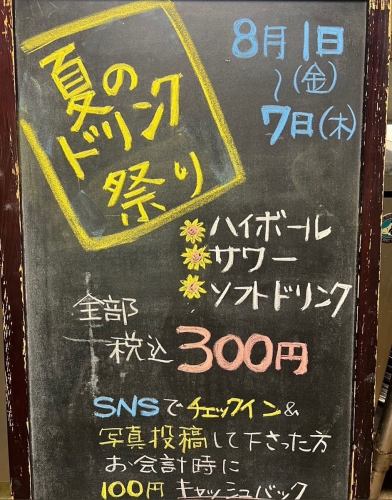 夏の
ドリンク
祭り
8月1日
(金)
〜
7日(木)
ハイボール
サワー
ソフトドリンク
全部
税込 300円
SNSでチェックイン&
写真投稿して下さった方
お会計時に
100円キャッシュバック